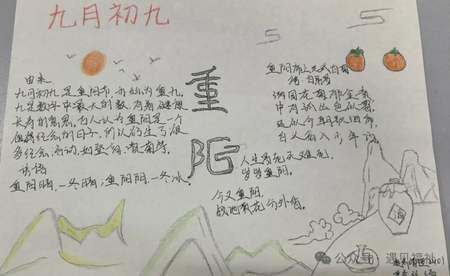 九月初九
由来
九月初九是重阳节,也称为重九,
九是数字中最大的数,有着
长寿的意思,古人认为重阳是一个
值得纪念的日子,所以衍生了很
多纪念活动,如登高,
谚语
重阳晴,一冬晴,重阳阴,一冬冰。
重
阳
人生易老天难老,
岁岁重阳,
今又重阳
战地黄花分外香。
重阳席上赋白菊
唐 白居易
满园花菊郁金黄
中有孤丛色似霜
还似今朝歌酒席
白头翁入少年场
酒
公众号·遇见福祉